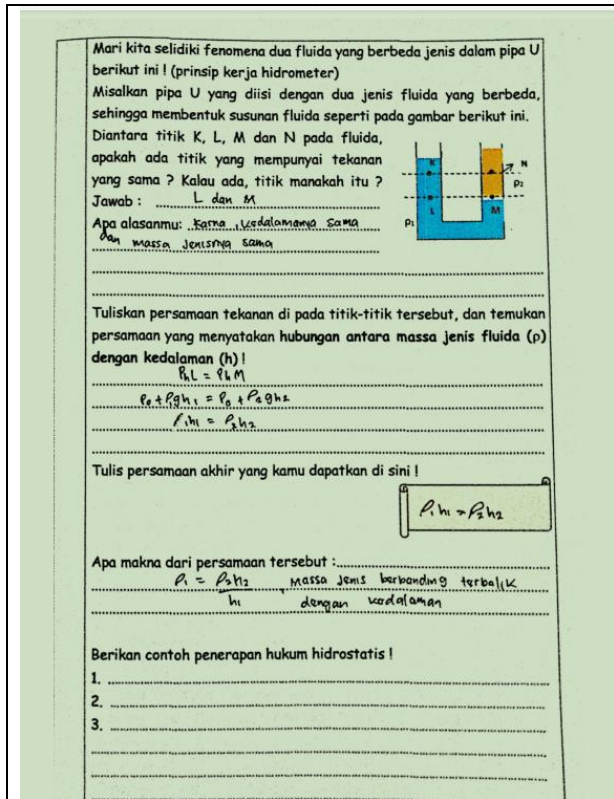 Mari kita selidiki fenomena dua fluida yang berbeda jenis dalam pipa U
berikut ini ! (prinsip kerja hidrometer)
Misalkan pipa U yang diisi dengan dua jenis fluida yang berbeda,
sehingga membentuk susunan fluida seperti pada gambar berikut ini.
Diantara titik K, L, M dan N pada fluida,
apakah ada titik yang mempunyai tekanan
yang sama ? Kalau ada, titik manakah itu ?
Jawab : L dan M
Apa alasanmu: Karna, kedalamannya sama
dan massa jenisnya sama
K
N
ρ2
L
M
ρ1
Tuliskan persamaan tekanan di pada titik-titik tersebut, dan temukan
persamaan yang menyatakan hubungan antara massa jenis fluida (ρ)
dengan kedalaman (h) !
PhL = PhM
P0 + ρ1gh1 = P0 + ρ2gh2
ρ1h1 = ρ2h2
Tulis persamaan akhir yang kamu dapatkan di sini !
ρ1h1 = ρ2h2
Apa makna dari persamaan tersebut :
ρ1 = ρ2h2 , Massa Jenis berbanding terbalik
h1 dengan kedalaman
Berikan contoh penerapan hukum hidrostatis !
1.
2.
3.